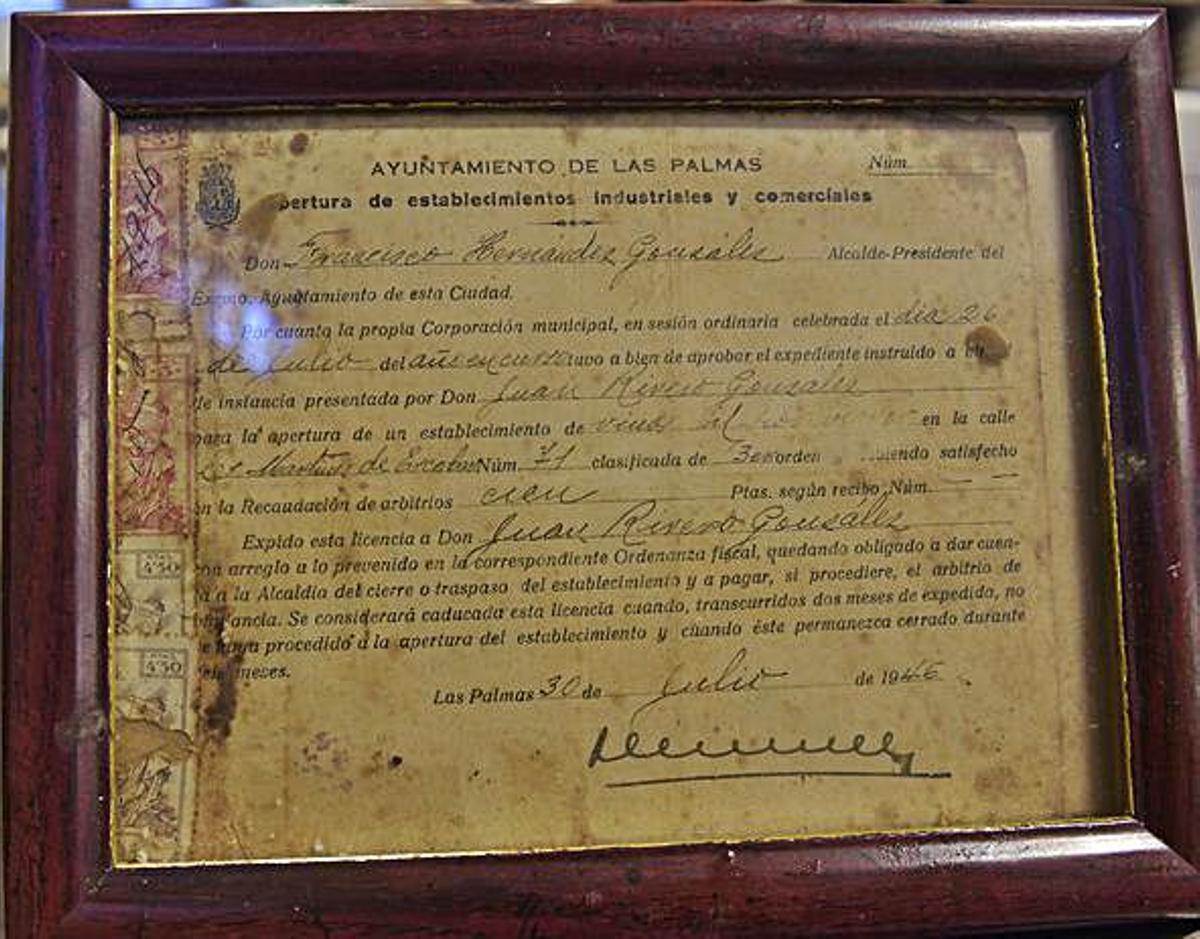 AYUNTAMIENTO DE LAS PALMAS
Núm.
pertura de establecimientos industriales y comerciales
Don Francisco Hernández Gonsáles Alcalde-Presidente del
Excmo. Ayuntamiento de esta Ciudad.
Por cuanto la propia Corporación municipal, en sesión ordinaria celebrada el día 26
de Julio del año en curso tuvo a bien de aprobar el expediente instruido a
de instancia presentada por Don Juan Rivero Gonsáles
para la apertura de un establecimiento de vinos al en la calle
Martínez de Escobar Núm. 71 clasificada de 3er orden satisfecho
en la Recaudación de arbitrios cien Ptas. según recibo Núm.
Expido esta licencia a Don Juan Rivero Gonsáles
con arreglo a lo prevenido en la correspondiente Ordenanza fiscal, quedando obligado a dar cuen-
ta a la Alcaldía del cierre o traspaso del establecimiento y a pagar, si procediere, el arbitrio de
Se considerará caducada esta licencia cuando, transcurridos dos meses de expedida, no
se haya procedido a la apertura del establecimiento y cuando éste permanezca cerrado durante
seis meses.
Las Palmas 30 de Julio de 1946
4'50
4'50